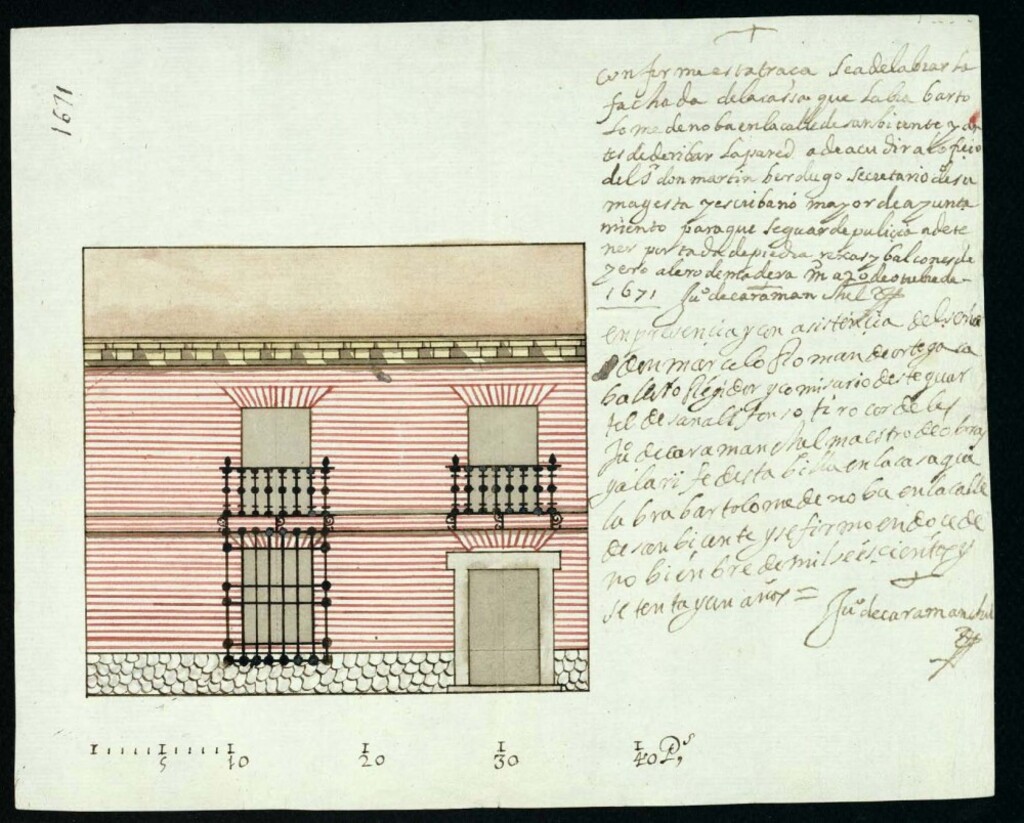 1671
conforme esta traça sea de labrar la
fachada de la cassa que labra barto
lome de noba en la calle de san bicente y an
tes de deribar la pared a de acudir al oficio
del Sr don martin berdugo secretario de su
magesta y escribano mayor de ayunta
miento para que se guarde pulicia a de te
ner portada de piedra rexas y balcones de
yero alero de madera m a 20 de otubre de
1671 Juo de caramanchel
en presencia y con asistencia del señor
don marcelo Roman de ortega
Regidor y comisario deste quar
tel de san alifonso tiro cordeles
Juo de caramanchel maestro de obras
y alarife desta billa en la casa que
labra bartolome de noba en la calle
de san bicente y se firmo en doce de
nobienbre de mil seiscientos y
setenta y un años =
Juo de caramanchel
1 5 10 20 30 40 Ps